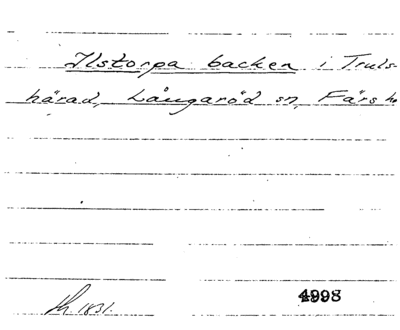 Ilstorpa backen i Truls-
härad, Långaröd sn, Färs h
1831.
4998